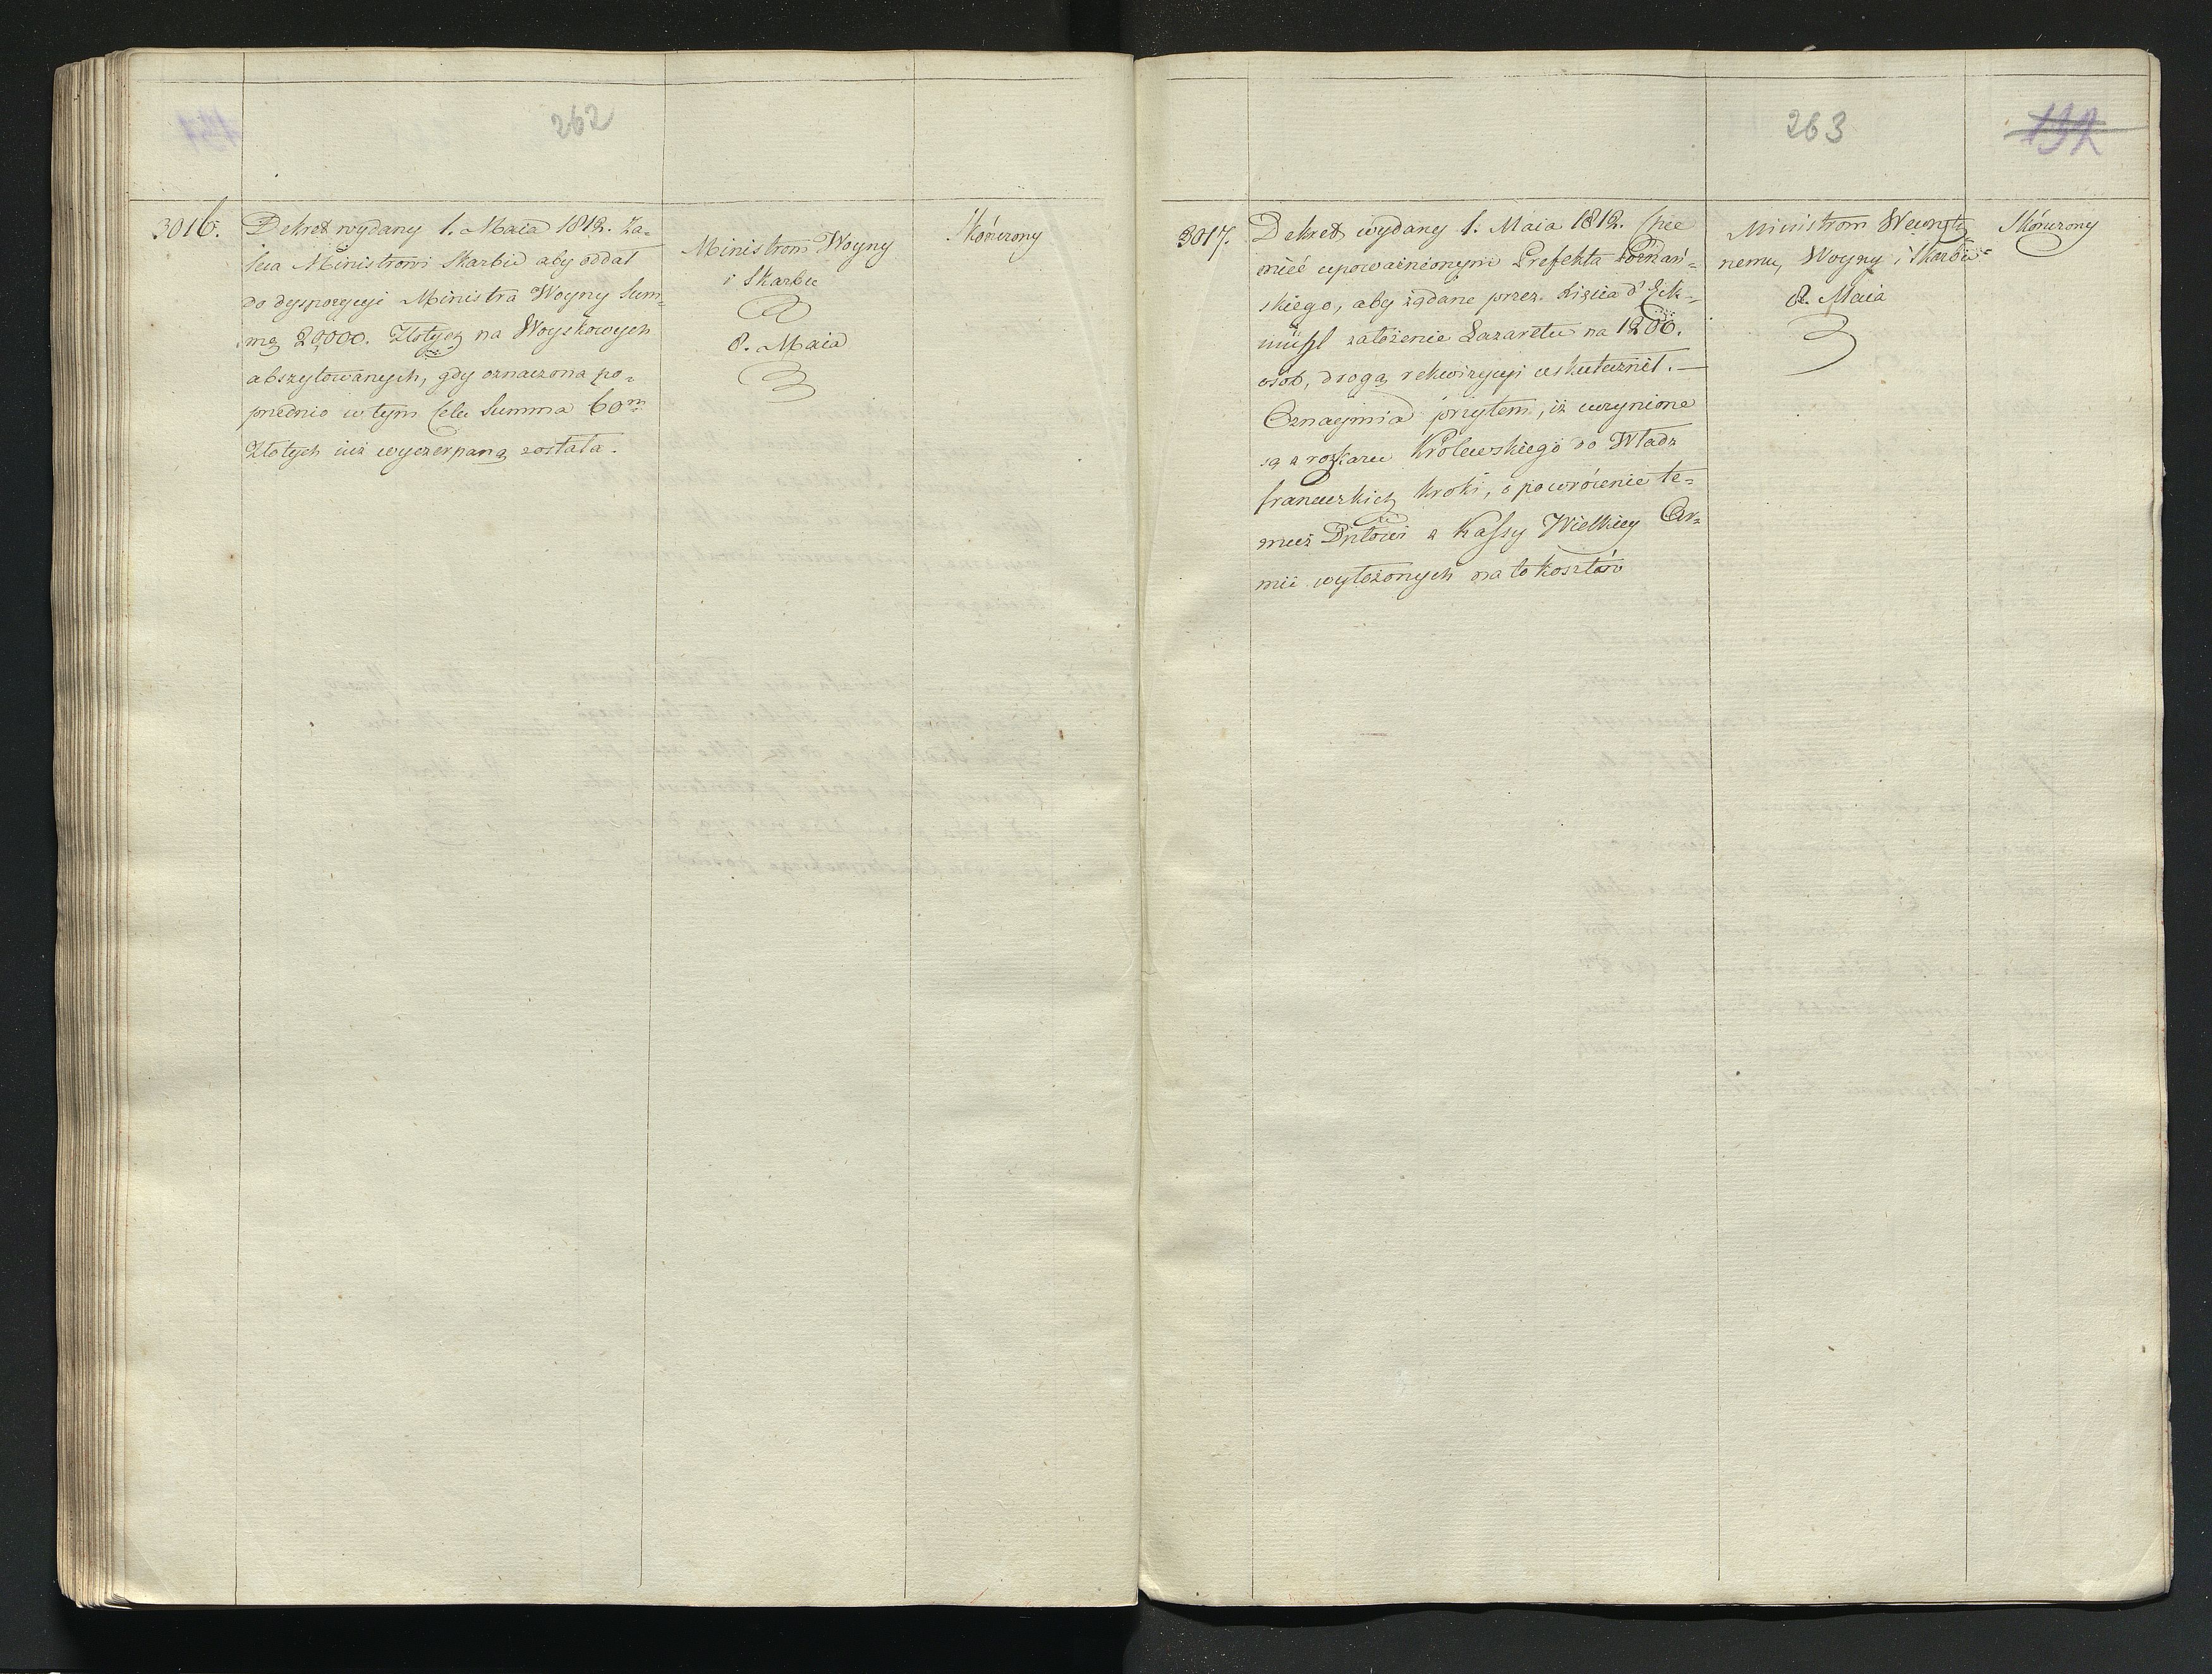 262
3016.
Dekret wydany 1. Maia 1812. Za-
leca Ministrowi Skarbu aby oddał
do dyspozycyi Ministra Woyny Sum-
mę 20,000. Złotych na Woyskowych
abszytowanych, gdy oznaczona po-
przednio w tym Celu Summa 60m
Złotych iuż wyczerpaną została.
Ministrom Woyny
i Skarbu
8. Maia
Skończony
263
132
3017.
Dekret wydany 1. Maia 1812. Chce
mieć upoważnionym Prefekta Poznań-
skiego, aby żądane przez Xięcia d'Eck-
mühl założenie Lazaretu na 1200.
osob, drogą rekwizycyi uskutecznił. —
Oznaymia przytem, iż uczynione
są z rozkazu Królewskiego do Władz
francuzkich kroki, o powrócenie te-
muż Pnłowi z Kassy Wielkiey Ar-
mii wyłożonych na to kosztów
Ministrom Wewnętrz
nemu, Woyny i Skarbu
8. Maia
Skończony